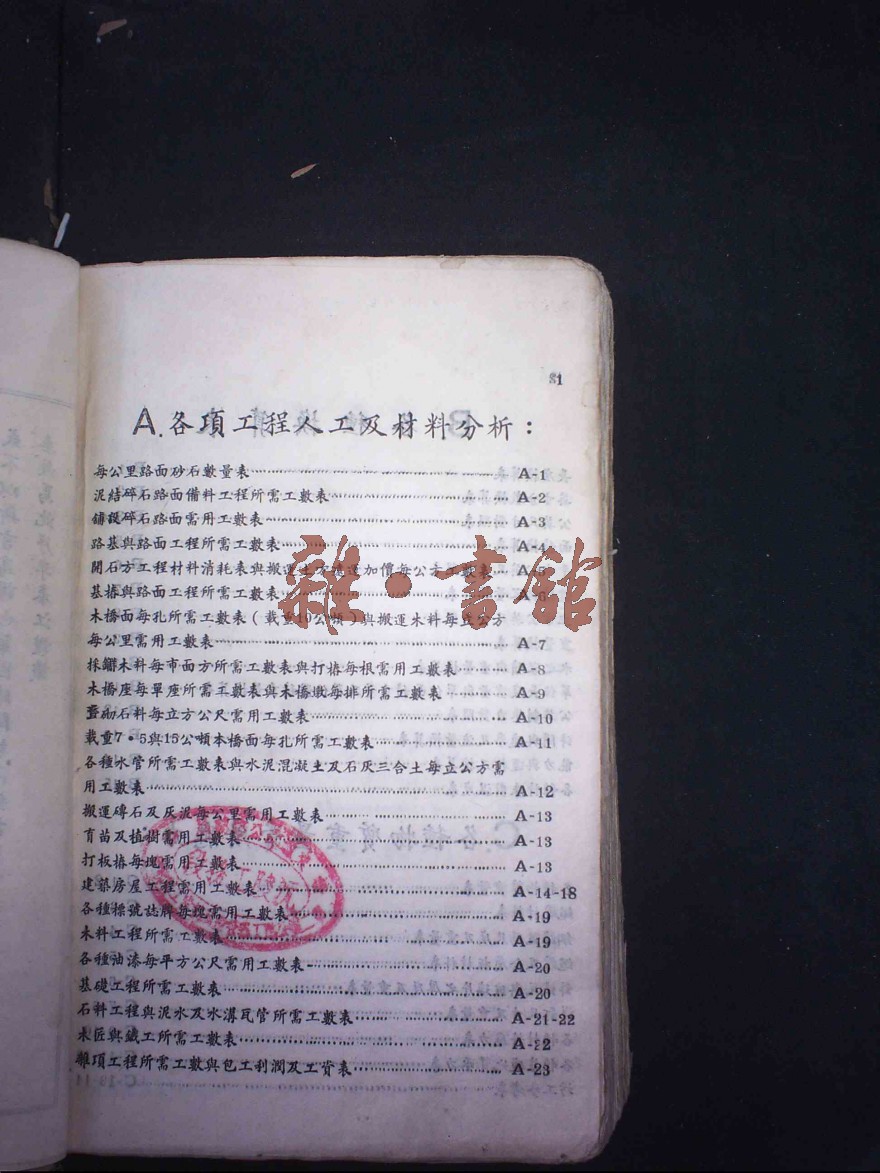 31
A.各項工程人工及材料分析：
每公里路面砂石數量表 A-1
泥結碎石路面備料工程所需工數表 A-2
鋪設碎石路面需用工數表 A-3
路基與路面工程所需工數表 A-4
開石方工程材料消耗表與搬運土方遞運加價每公方工數表 A-5
基樁與路面工程所需工數表 A-6
木橋面每孔所需工數表(載重10公噸)與搬運木料每立公方
每公里需用工數表 A-7
採鋸木料每市面方所需工數表與打樁每根需用工數表 A-8
木橋座每單座所需工數表與木橋墩每排所需工數表 A-9
整砌石料每立方公尺需用工數表 A-10
載重7·5與15公噸木橋面每孔所需工數表 A-11
各種水管所需工數表與水泥混凝土及石灰三合土每立公方需
用工數表 A-12
搬運磚石及灰泥每公里需用工數表 A-13
育苗及植樹需用工數表 A-13
打板樁每塊需用工數表 A-13
建築房屋工程需用工數表 A-14-18
各種標號誌牌每塊需用工數表 A-19
木料工程所需工數表 A-19
各種油漆每平方公尺需用工數表 A-20
基礎工程所需工數表 A-20
石料工程與泥水及水溝瓦管所需工數表 A-21-22
木匠與鐵工所需工數表 A-22
雜項工程所需工數與包工利潤及工資表 A-23
雜·書館